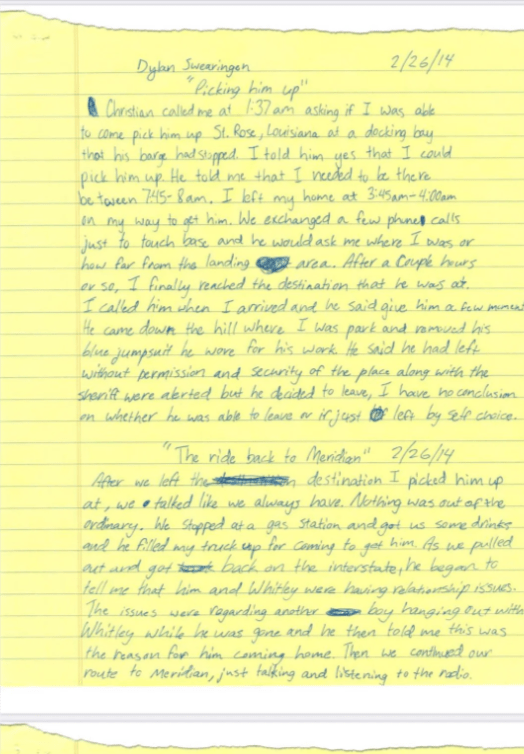 Dylan Swearingen 2/26/14
"Picking him up"
Christian called me at 1:37am asking if I was able
to come pick him up St. Rose, Louisiana at a docking bay
that his barge had stopped. I told him yes that I could
pick him up. He told me that I needed to be there
between 7:45-8am. I left my home at 3:45am-4:00am
on my way to get him. We exchanged a few phone calls
just to touch base and he would ask me where I was or
how far from the landing area. After a couple hours
or so, I finally reached the destination that he was at.
I called him when I arrived and he said give him a few
He came down the hill where I was park and removed his
blue jumpsuit he wore for his work. He said he had left
without permission and security of the place along with the
sheriff were alerted but he decided to leave, I have no conclusion
on whether he was able to leave or if just left by self choice.
"The ride back to Meridian" 2/26/14
After we left the destination I picked him up
at, we talked like we always have. Nothing was out of the
ordinary. We stopped at a gas station and got us some drinks
and he filled my truck up for coming to get him. As we pulled
out and got back on the interstate, he began to
tell me that him and Whitley were having relationship issues.
The issues were regarding another boy hanging out with
Whitley while he was gone and he then told me this was
the reason for him coming home. Then we continued our
route to Meridian, just talking and listening to the radio.